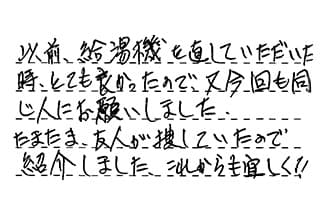 以前、給湯機を直していただいた
時、とても良かったので、又今回も同
じ人にお願いしました。
たまたま、友人が捜していたので
紹介しました、これからも宜しく!!